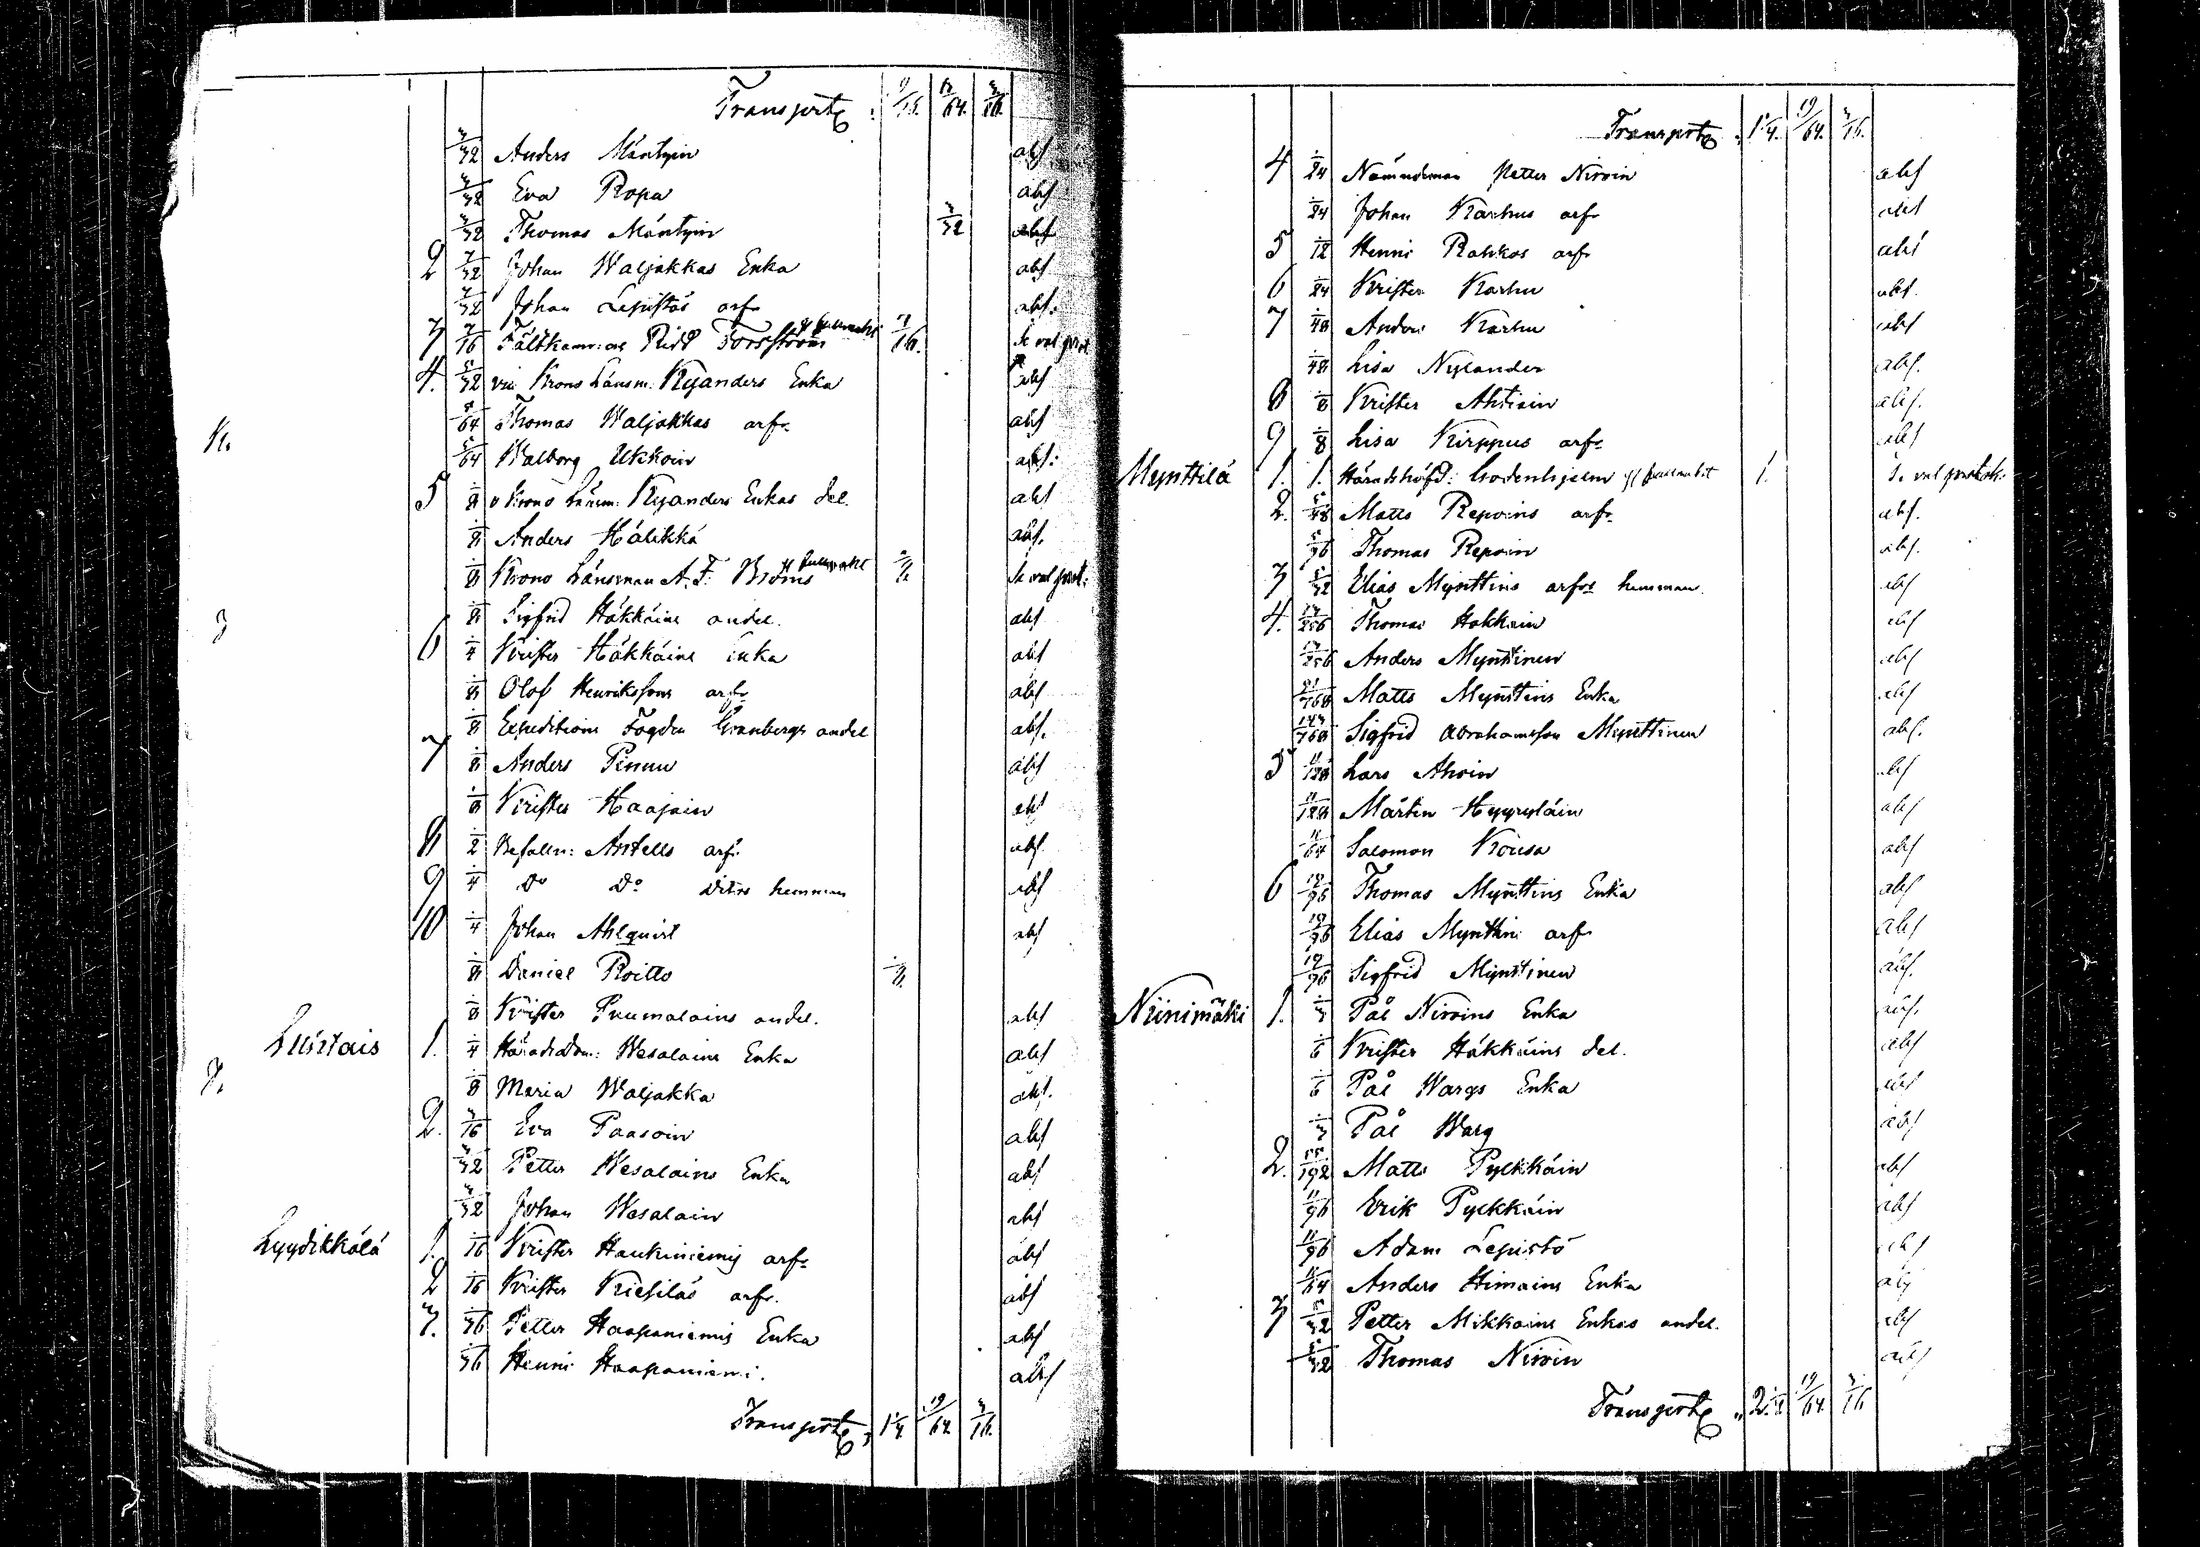 Transport 9/16. 13/64. 3/16.
3/32 Anders Mäntyin abs
3/32 Eva Ropa abs
3/32 Thomas Mäntyin 3/32 abs
2 7/32 Johan Waljakkas Enka abs
7/32 Johan Lepistös arf: abs.
3 7/16 Fältkamr: Ridd Forsström gl fullmakt 7/16. Se val prot
4. 5/32 vii Krono Länsm: Kyanders Enka abs
5/64 Thomas Waljakkas arf: abs
5/64 Walborg Ukkoin abs:
5 1/8 v Krono Länsm: Kyanders Enkas del. abs
1/8 Anders Hälikkä abs.
1/8 Krono Länsman A. F. Broms gl fullmakt 1/8 Se val prot:
1/8 Sigfrid Häkkäins andel. abs
6 1/4 Krister Häkkäins Enka abs
1/8 Olof Henrikssons arf: abs
1/8 Expeditions Fogden Granbergs andel abs.
7 1/8 Anders Pinnu abs
1/8 Krister Haajain abs
8 1/2 Befalln: Antells arf: abs
9 1/4 Do Do Ditvs hemman abs
10 1/4 Johan Ahlqvist abs
1/8 Daniel Roitto 1/8.
1/8 Krister Puumalains andel. abs
Luistais 1. 1/4 Häradsdom: Wesalains Enka abs
1/8 Maria Waljakka abs.
2. 3/16 Eva Paasoin abs
3/32 Petter Wesalains Enka abs
3/32 Johan Wesalain abs
Lyydikkälä 1. 1/16 Krister Haukiniemis arf: abs
2 1/16 Krister Kiesiläs arf:. abs
3. 1/36 Petter Haapaniemis Enka abs
1/36 Henric Haapaniemi. abs
Transport 1 1/4 19/64. 3/16.
Transport 1 1/4. 19/64. 3/16.
4 1/24 Nämndeman Petter Niroin abs
1/24 Johan Karhus arf: abs
5 1/12 Henric Rahkos arf: abs
6 1/24 Krister Karhu abs.
7 1/48 Anders Karhu abs
1/48 Lisa Nylander abs.
8 1/8 Krister Ahtiain abs.
9 1/8 Lisa Kirppus arf: abs
Mynttilä 1. 1. Häradshöfd: Godenhjelm gl fullmakt 1. Se val protok:
2. 5/48 Matts Repoins arf: abs.
5/96 Thomas Repoin abs.
3 5/32 Elias Mynttins arfvs hemman. abs
4. 17/256 Thomas Hokkain abs
17/256 Anders Mynttinen abs
Matts Mynttins Enka abs
Sigfrid Abrahamsson Mynttinen abs.
5 11/128 Lars Ahoin abs
11/128 Mårten Hyyryläin abs
11/64 Salomon Kousa abs
6 19/96 Thomas Mynttins Enka abs
19/96 Elias Mynttins arf: abs
19/96 Sigfrid Mynttinen abs.
Niinimäki 1. 1/3 Pål Niroins Enka abs.
1/6 Krister Häkkäins del. abs
1/6 Pål Wargs Enka abs
1/3 Pål Warg abs
2. 55/192 Matts Pylkkäin abs
11/96 Erik Pylkkäin abs
11/96 Adam Lepistö abs
11/64 Anders Himains Enka abs
3 5/32 Petter Mikkoins Enkas andel. abs
5/32 Thomas Niroin abs
Transport 2 1/4 19/64. 3/16